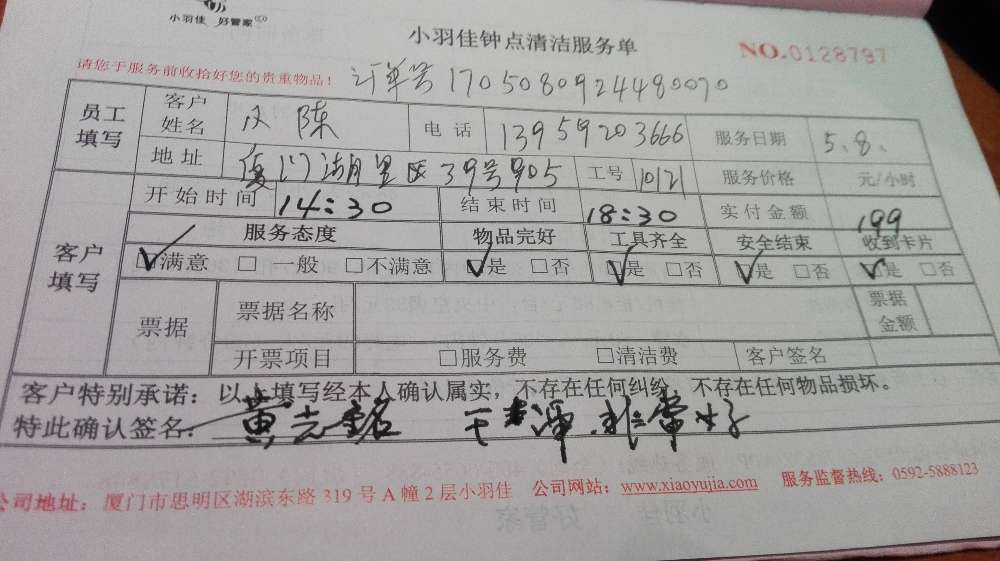 小羽佳 好管家
小羽佳钟点清洁服务单
NO.0128797
请您于服务前收拾好您的贵重物品！ 订单号 1705080924480070
员工填写 客户姓名 陈 电话 13959203666 服务日期 5.8.
地址 厦门湖里区39号905 工号 1012 服务价格 元/小时
开始时间 14:30 结束时间 18:30 实付金额 199
客户填写 服务态度 物品完好 工具齐全 安全结束 收到卡片
☑满意 □一般 □不满意 ☑是 □否 ☑是 □否 ☑是 □否 ☑是 □否
票据 票据名称 票据金额
开票项目 □服务费 □清洁费 客户签名
客户特别承诺：以上填写经本人确认属实，不存在任何纠纷，不存在任何物品损坏。
特此确认签名: 黄志铭 干净.非常好
公司地址：厦门市思明区湖滨东路319号A幢2层小羽佳 公司网站：www.xiaoyujia.com 服务监督热线：0592-5888123